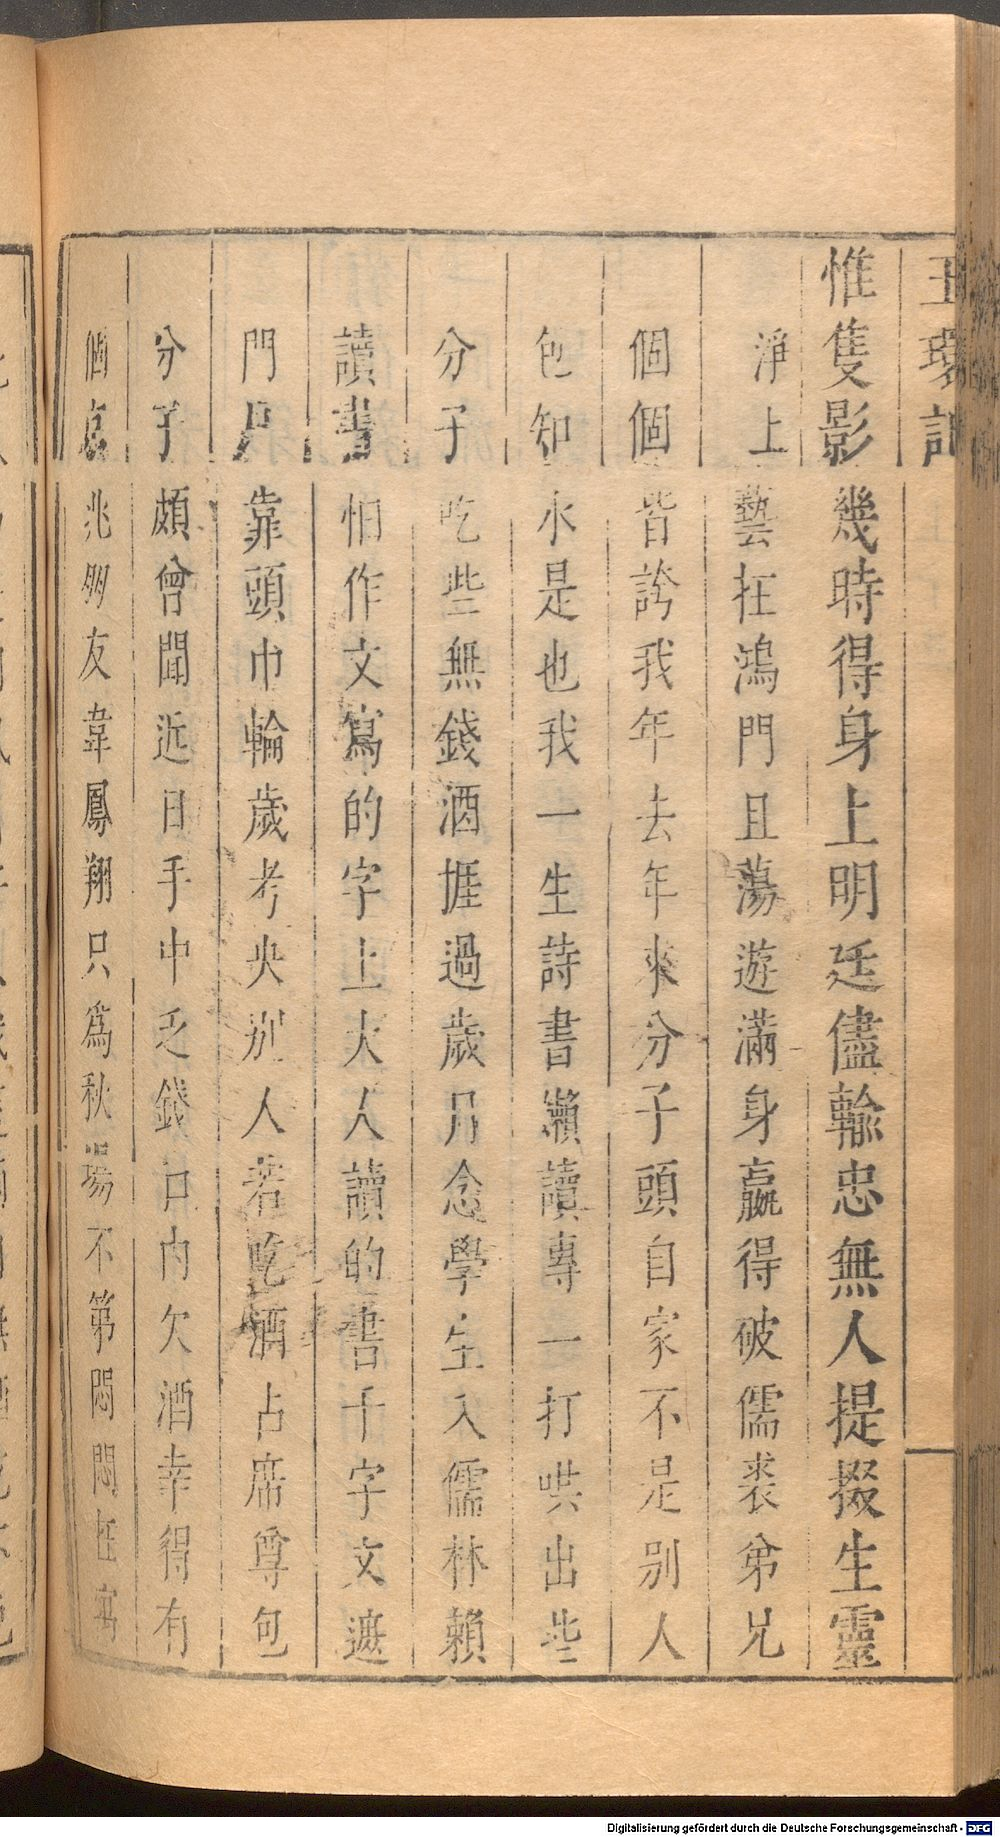 玉環記
惟隻影幾時得身上明廷儘輸忠無人提掇生靈
淨上藝在鴻門且蕩遊滿身嬴得破儒裘弟兄
個個皆誇我年去年來分子頭自家不是別人
包知水是也我一生詩書懶讀專一打哄出些
分子吃些無錢酒捱過歲月念學生入儒林賴
讀書怕作文寫的字上大人讀的書千字文遮
門戶靠頭巾輪歲考央別人若吃酒占席尊包
分子頗曾聞近日手中乏錢口內欠酒幸得有
個京兆朋友韋鳳翔只為秋場不第悶悶在寓
Digitalisierung gefördert durch die Deutsche Forschungsgemeinschaft - DFG